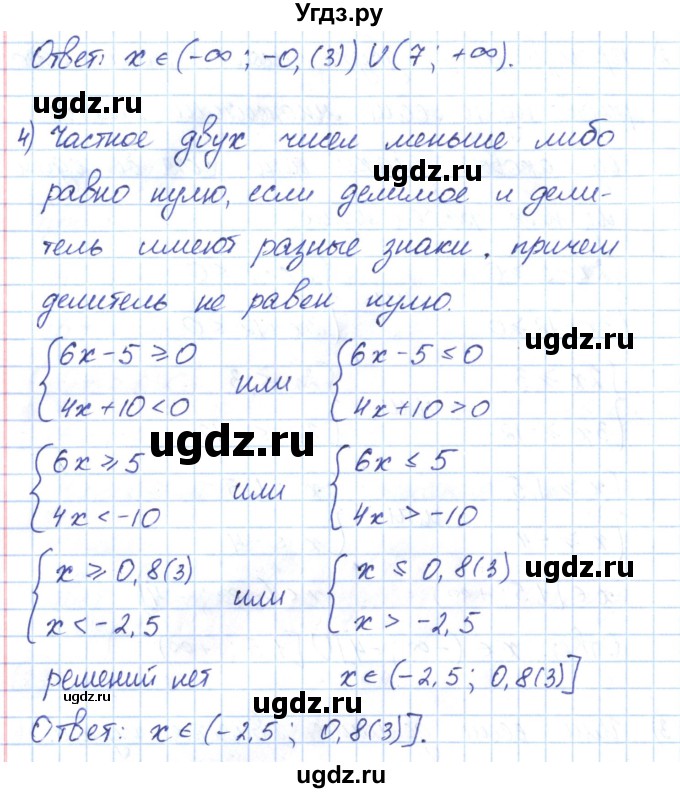 Угдз.ру
Ответ: x ∈ (-∞; -0,(3)) U (7; +∞).
ugdz.ru
4) Частное двух чисел меньше либо
ugdz.ru
равно нулю, если делимое и дели-
тель имеют разные знаки, причем
делитель не равен нулю.
ugdz.ru
{6x-5 ≥ 0 или {6x-5 ≤ 0
{4x+10 < 0 {4x+10 > 0
ugdz.ru
{6x ≥ 5 или {6x ≤ 5
{4x < -10 {4x > -10
ugdz.ru
{x ≥ 0,8(3) или {x ≤ 0,8(3)
{x < -2,5 {x > -2,5
решений нет x ∈ (-2,5; 0,8(3)]
ugdz.ru ugdz.ru
Ответ: x ∈ (-2,5; 0,8(3)].
ugdz.ru
ugdz.ru